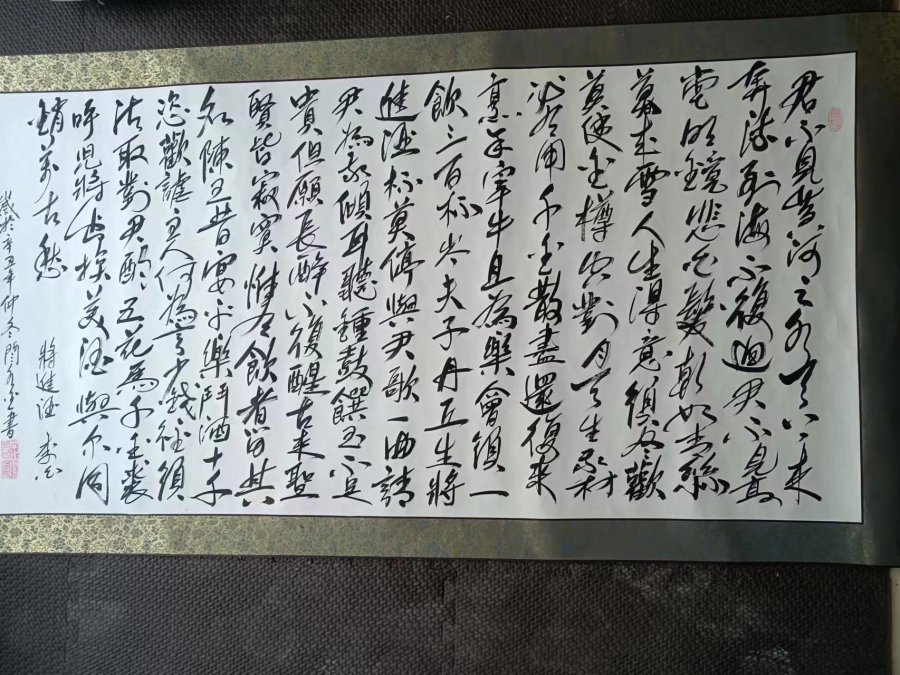 君不見黃河之水天上來
奔流到海不復迴君不見高
堂明鏡悲白髮朝如青絲
暮成雪人生得意須盡歡
莫使金樽空對月天生我材
必有用千金散盡還復來
烹羊宰牛且為樂會須一
飲三百杯岑夫子丹丘生將
進酒杯莫停與君歌一曲請
君為我傾耳聽鍾鼓饌玉不足
貴但願長醉不復醒古來聖
賢皆寂寞惟有飲者留其
名陳王昔宴平樂鬥酒十千
恣歡謔主人何為言少錢徑須
沽取對君酌五花馬千金裘
呼兒將出換美酒與尔同
銷萬古愁
將進酒 李白
歲於辛丑年仲冬書